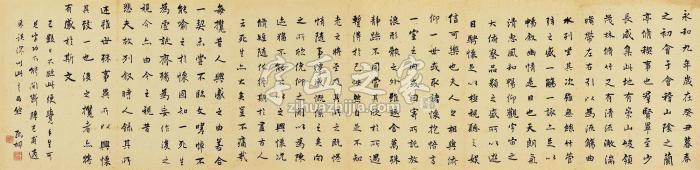 永和九年歲在癸丑暮春
之初會于會稽山陰之蘭
亭脩稧事也羣賢畢至少
長咸集此地有崇山峻領
茂林脩竹又有清流激湍
暎帶左右引以為流觴曲
水列坐其次雖無絲竹管
弦之盛一觴一詠亦足以
暢叙幽情是日也天朗氣
清惠風和暢仰觀宇宙之
大俯察品類之盛所以遊
目騁懷足以極視聽之娛
信可樂也夫人之相與俯
仰一世或取諸懷抱悟言
一室之內或因寄所託放
浪形骸之外雖趣舍萬殊
靜躁不同當其欣於所遇
暫得於己快然自足不知
老之將至及其所之既惓
情隨事遷感慨係之矣向
之所欣俛仰之間以為陳
迹猶不能不以之興懷況
脩短隨化終期於盡古人
云死生亦大矣豈不痛哉
每攬昔人興感之由若合
一契未嘗不臨文嗟悼不
能喻之於懷固知一死生
為虛誕齊彭殤為妄作後之
視今亦由今之視昔
悲夫故列叙時人錄其所
述雖世殊事異所以興懷
其致一也後之攬者亦將
有感於斯文
日不臨此便覺手生可
見字功不間斷